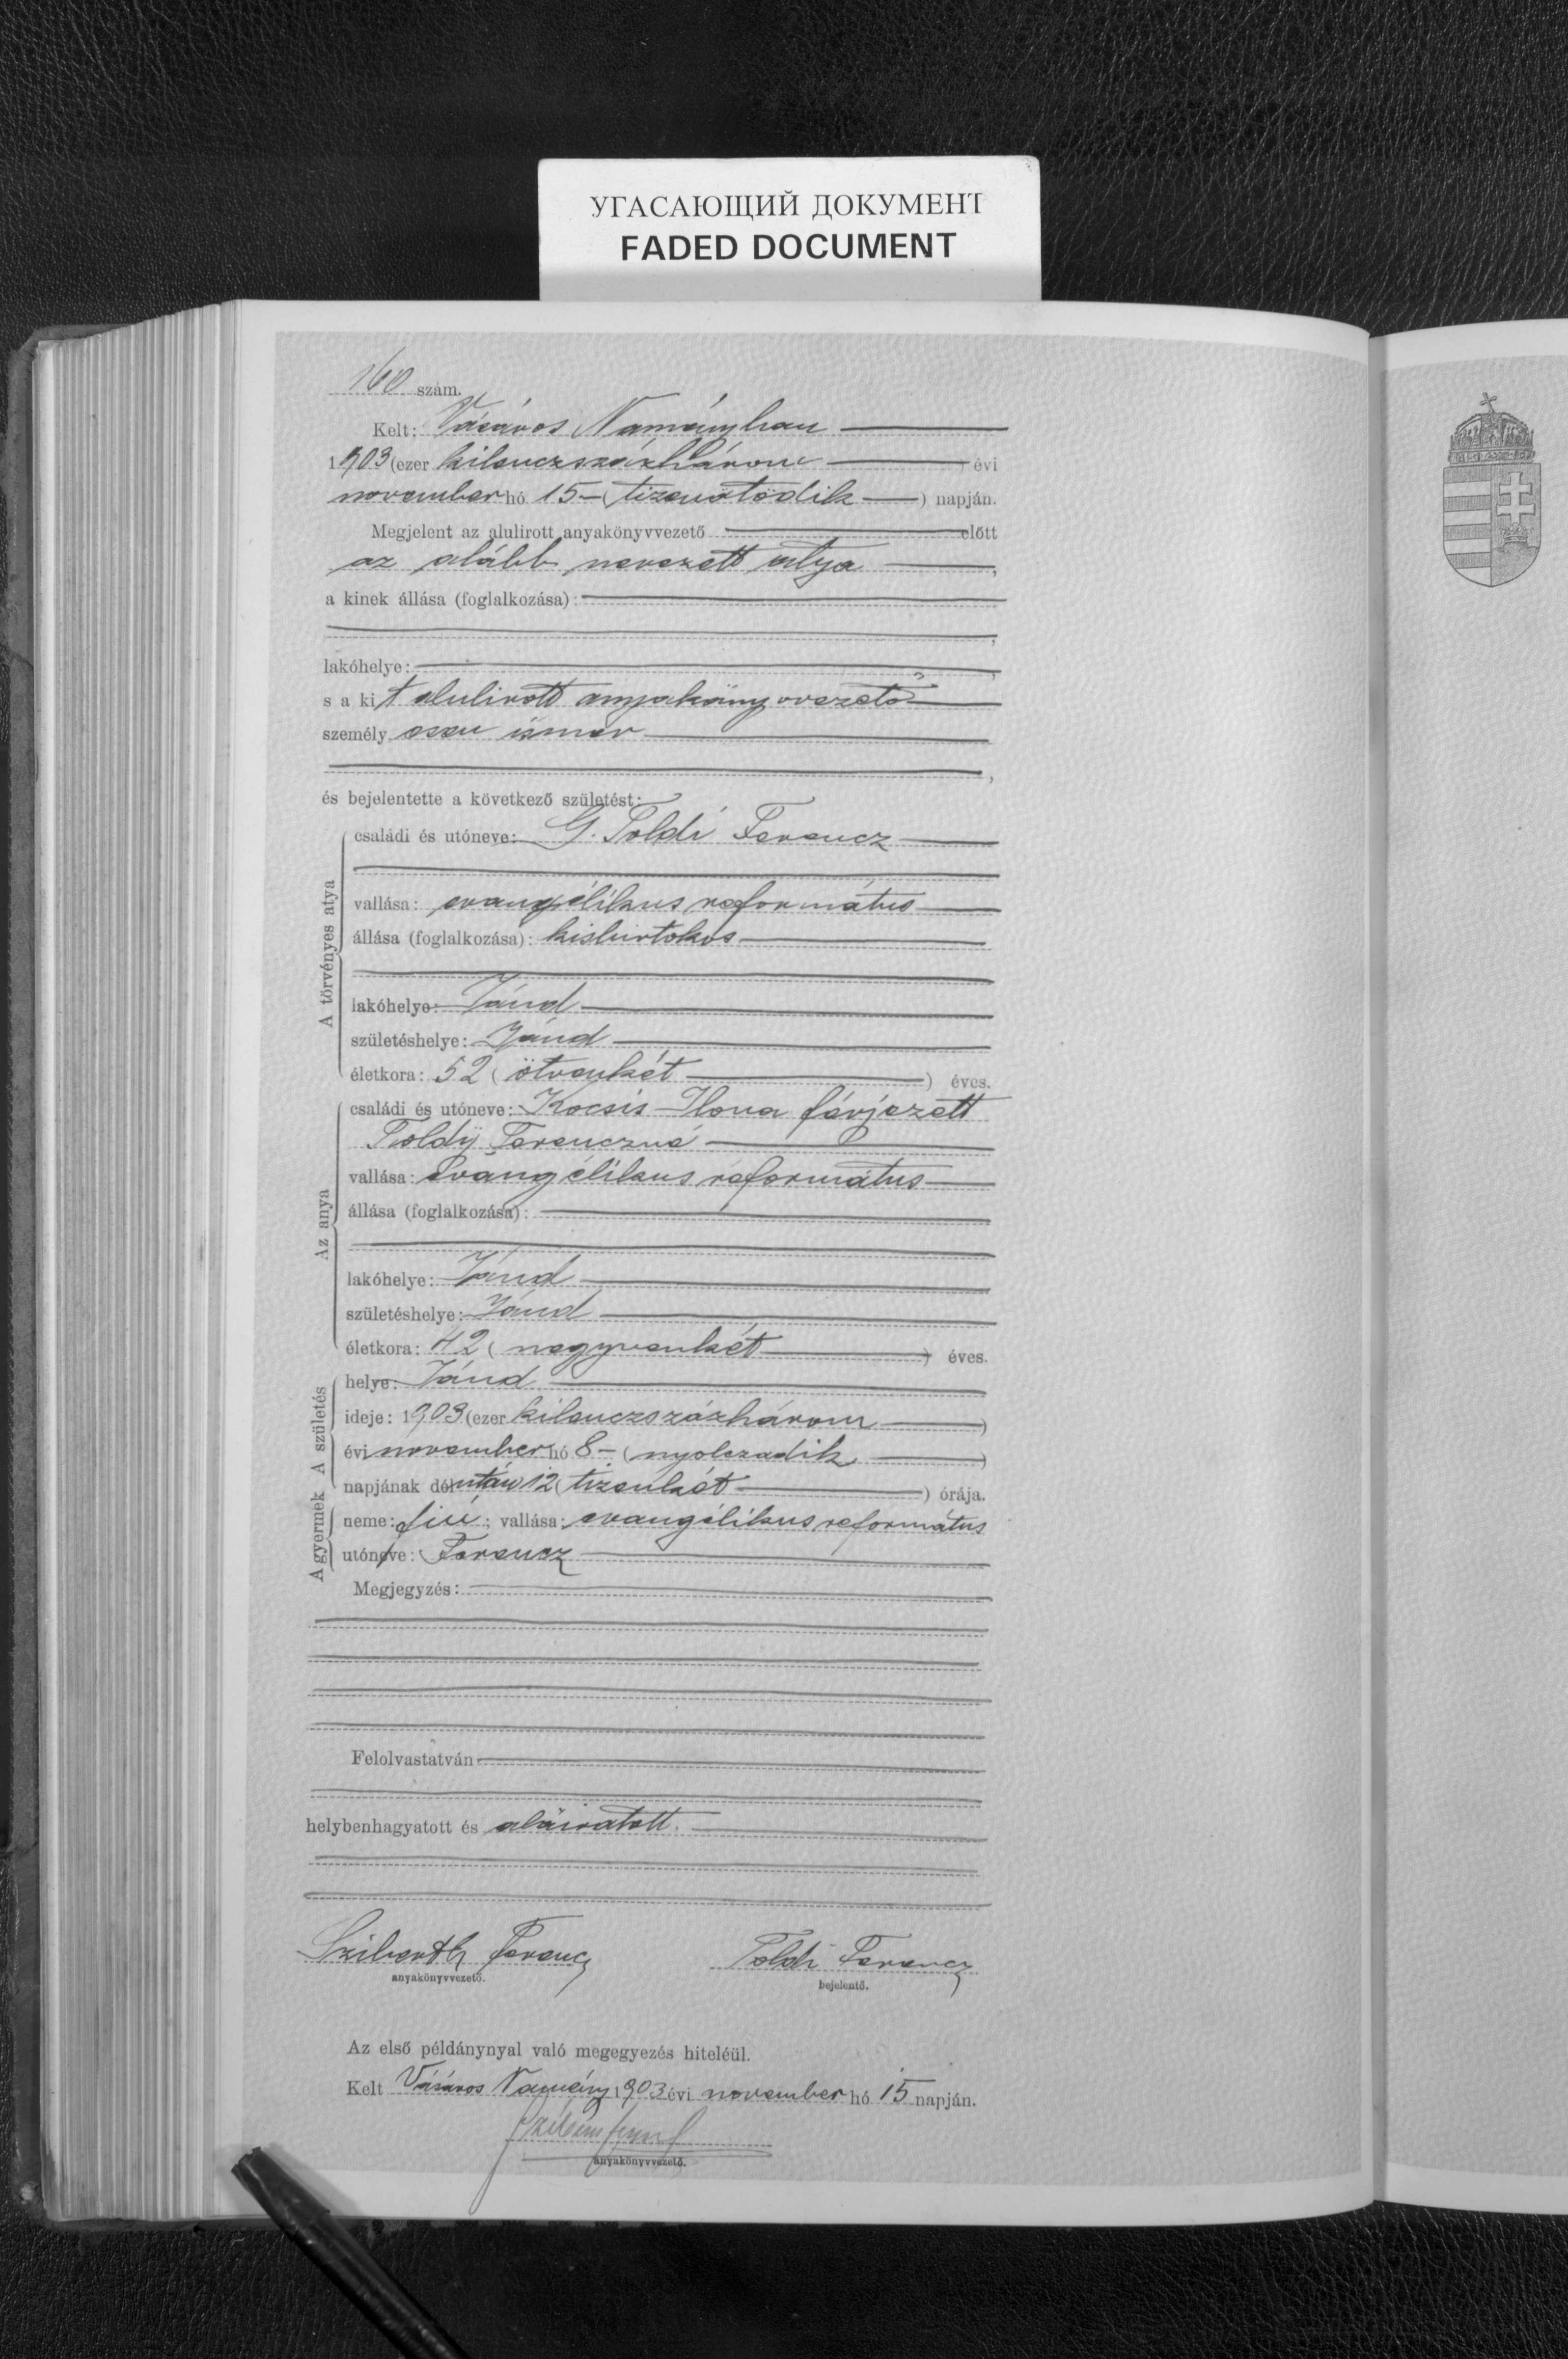 УГАСАЮЩИЙ ДОКУМЕНТ
FADED DOCUMENT
160 szám.
Kelt: Vásáros Naményban
1903 (ezer kilenczszázhárom) évi
november hó 15 – (tizenötödik) napján.
Megjelent az alulirott anyakönyvvezető előtt
az alább nevezett atya,
a kinek állása (foglalkozása):
lakóhelye:
s a kit alulirott anyakönyvvezető
személyesen ismer
és bejelentette a következő születést:
A törvényes atya
családi és utóneve: G. Toldi Ferencz
vallása: evangélikus református
állása (foglalkozása): kisbirtokos
lakóhelye: Jánd
születéshelye: Jánd
életkora: 52 (ötvenkét) éves.
Az anya
családi és utóneve: Kocsis Ilona férjezett
Toldy Ferenczné
vallása: Evangélikus református
állása (foglalkozása):
lakóhelye: Jánd
születéshelye: Jánd
életkora: 42 (negyvenkét) éves.
A születés
helye: Jánd
ideje: 1903 (ezer kilenczszázhárom)
évi november hó 8 – (nyolczadik)
napjának délután 12 (tizenkét) órája.
A gyermek
neme: fiú; vallása: evangélikus református
utóneve: Ferencz
Megjegyzés:
Felolvastatván
helybenhagyatott és aláiratott.
Sziberth Ferencz Toldi Ferencz
anyakönyvvezető. bejelentő.
Az első példánynyal való megegyezés hiteléül.
Kelt Vásáros Namény 1903 évi november hó 15 napján.
anyakönyvvezető.